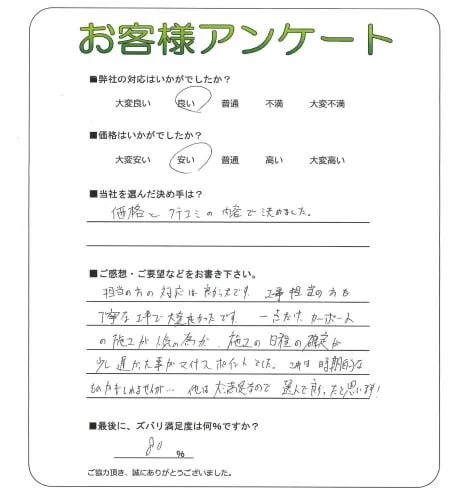 お客様アンケート
■弊社の対応はいかがでしたか？
大変良い 良い 普通 不満 大変不満
■価格はいかがでしたか？
大変安い 安い 普通 高い 大変高い
■当社を選んだ決め手は？
価格と クチコミの 内容で決めました。
■ご感想・ご要望などをお書き下さい。
担当の方の対応は良かったです。 工事担当の方も
丁寧な工事で大変良かったです。 一点だけ、カーポート
の施工が人気の為か、施工の日程の確定が
少し遅かった事がマイナスポイントでした。これは時期的な
ものかもしれませんが… 他は大満足なので 選んで良かったと思います！
■最後に、ズバリ満足度は何％ですか？
80 ％
ご協力頂き、誠にありがとうございました。